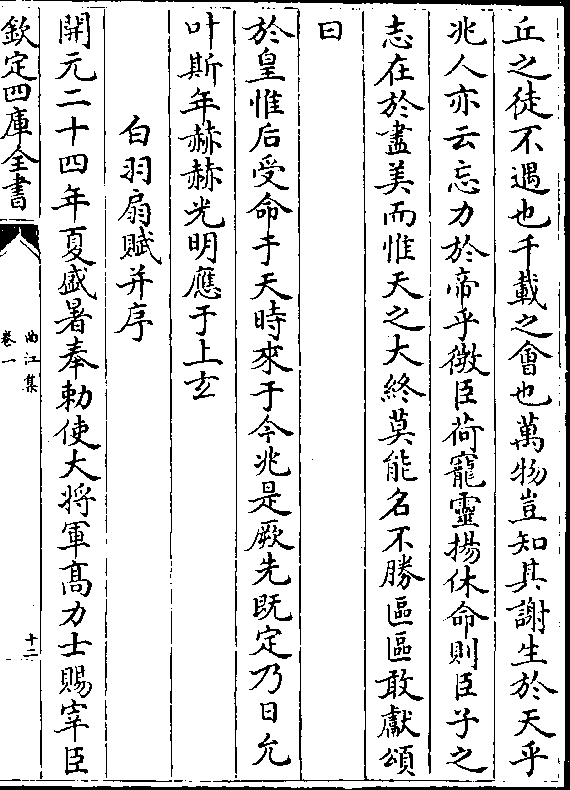 丘之徒不遇也千載之㑹也萬物豈知其謝生於天乎
兆人亦云忘力於帝乎㣲臣荷寵靈揚休命則臣子之
志在於盡美而惟天之大終莫能名不勝區區敢獻頌
曰
於皇惟后受命于天時來于今兆是厥先既定乃日允
叶斯年赫赫光明應于上玄
白羽扇賦并序
開元二十四年夏盛暑奉勅使大將軍髙力士賜宰臣
欽定四庫全書
曲江集
卷一
十二